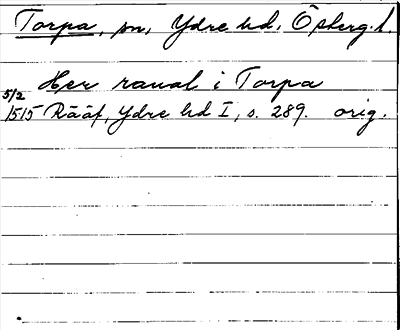 Torpa, sn, Ydre hd, Östergl.
Her raual i Torpa
5/2
1515 Rääf, Ydre hd I, s. 289. orig.